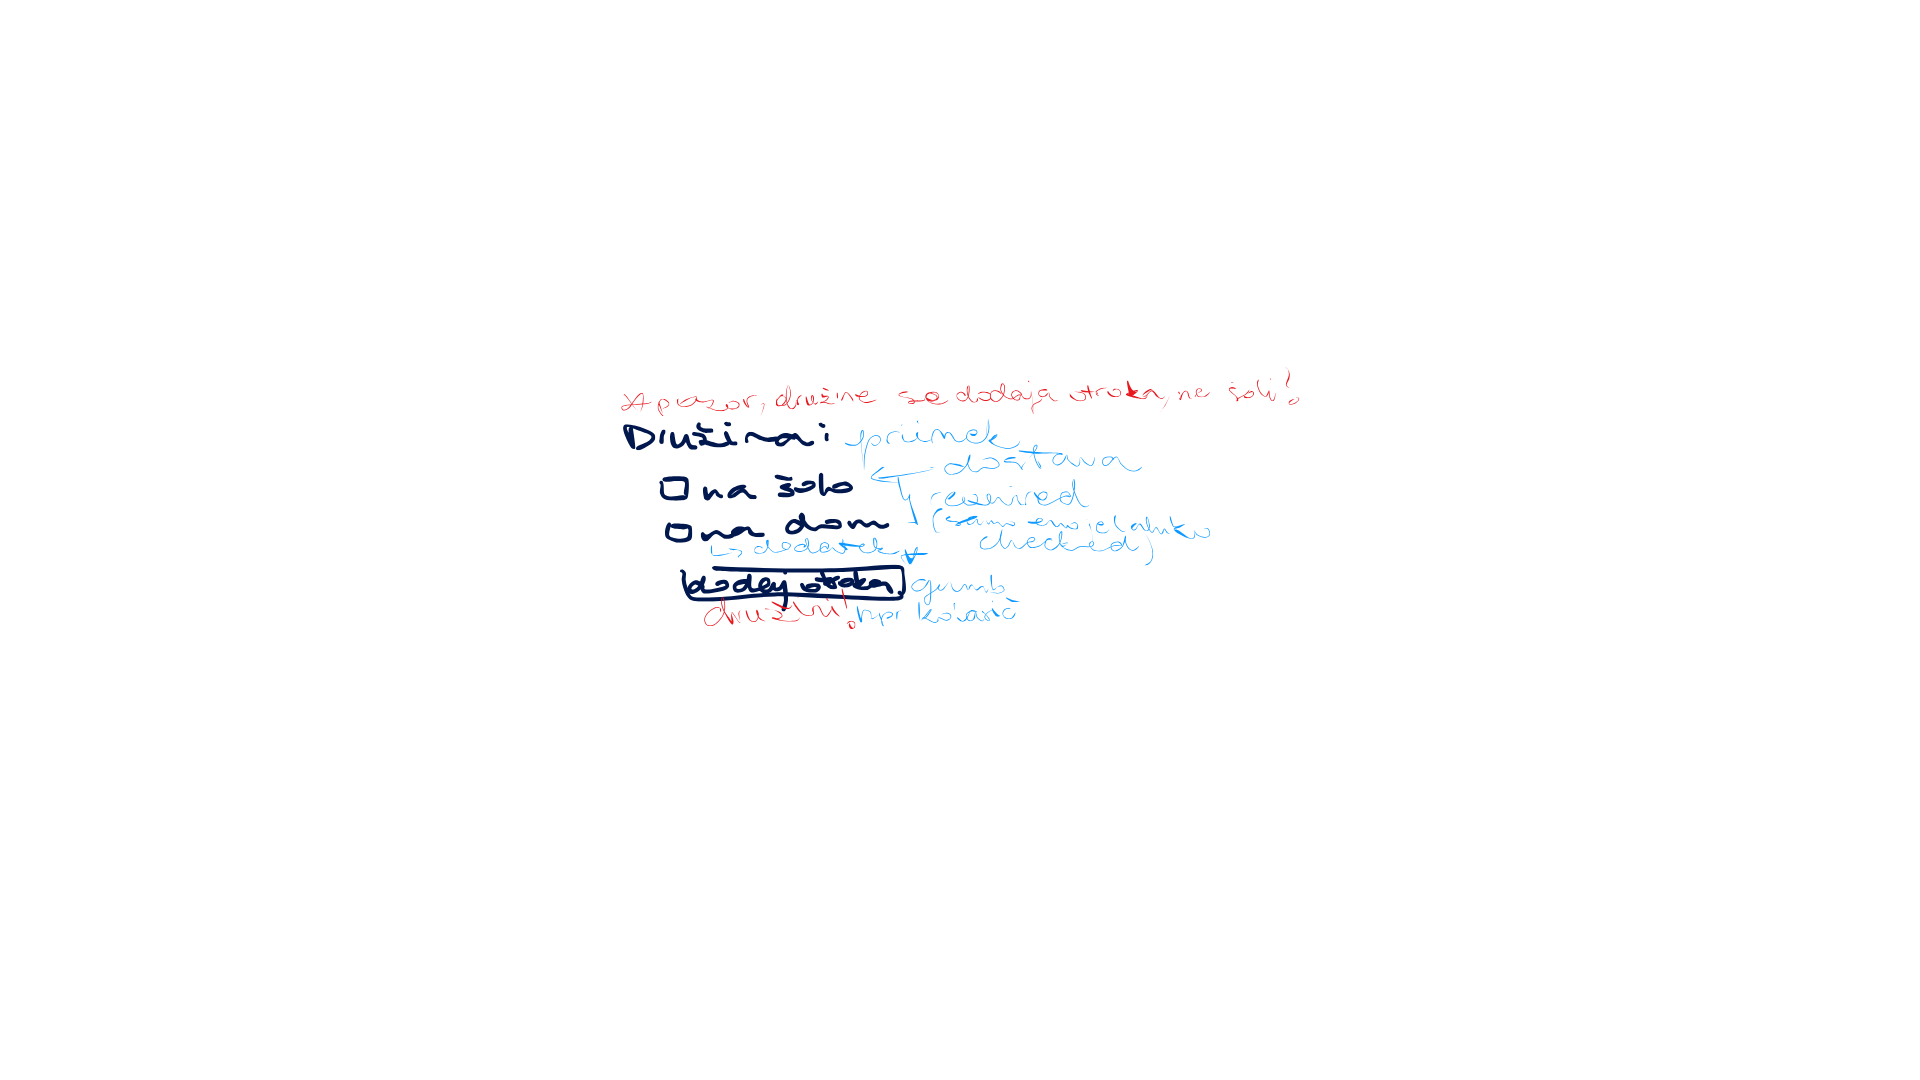 * pozor, družine se dodaja otroka, ne šoli!
Družina: priimek
dostava
na šolo
required
na dom
(samo eno je lahko
checked)
↳ dodatek
dodaj otroka gumb
družini! npr